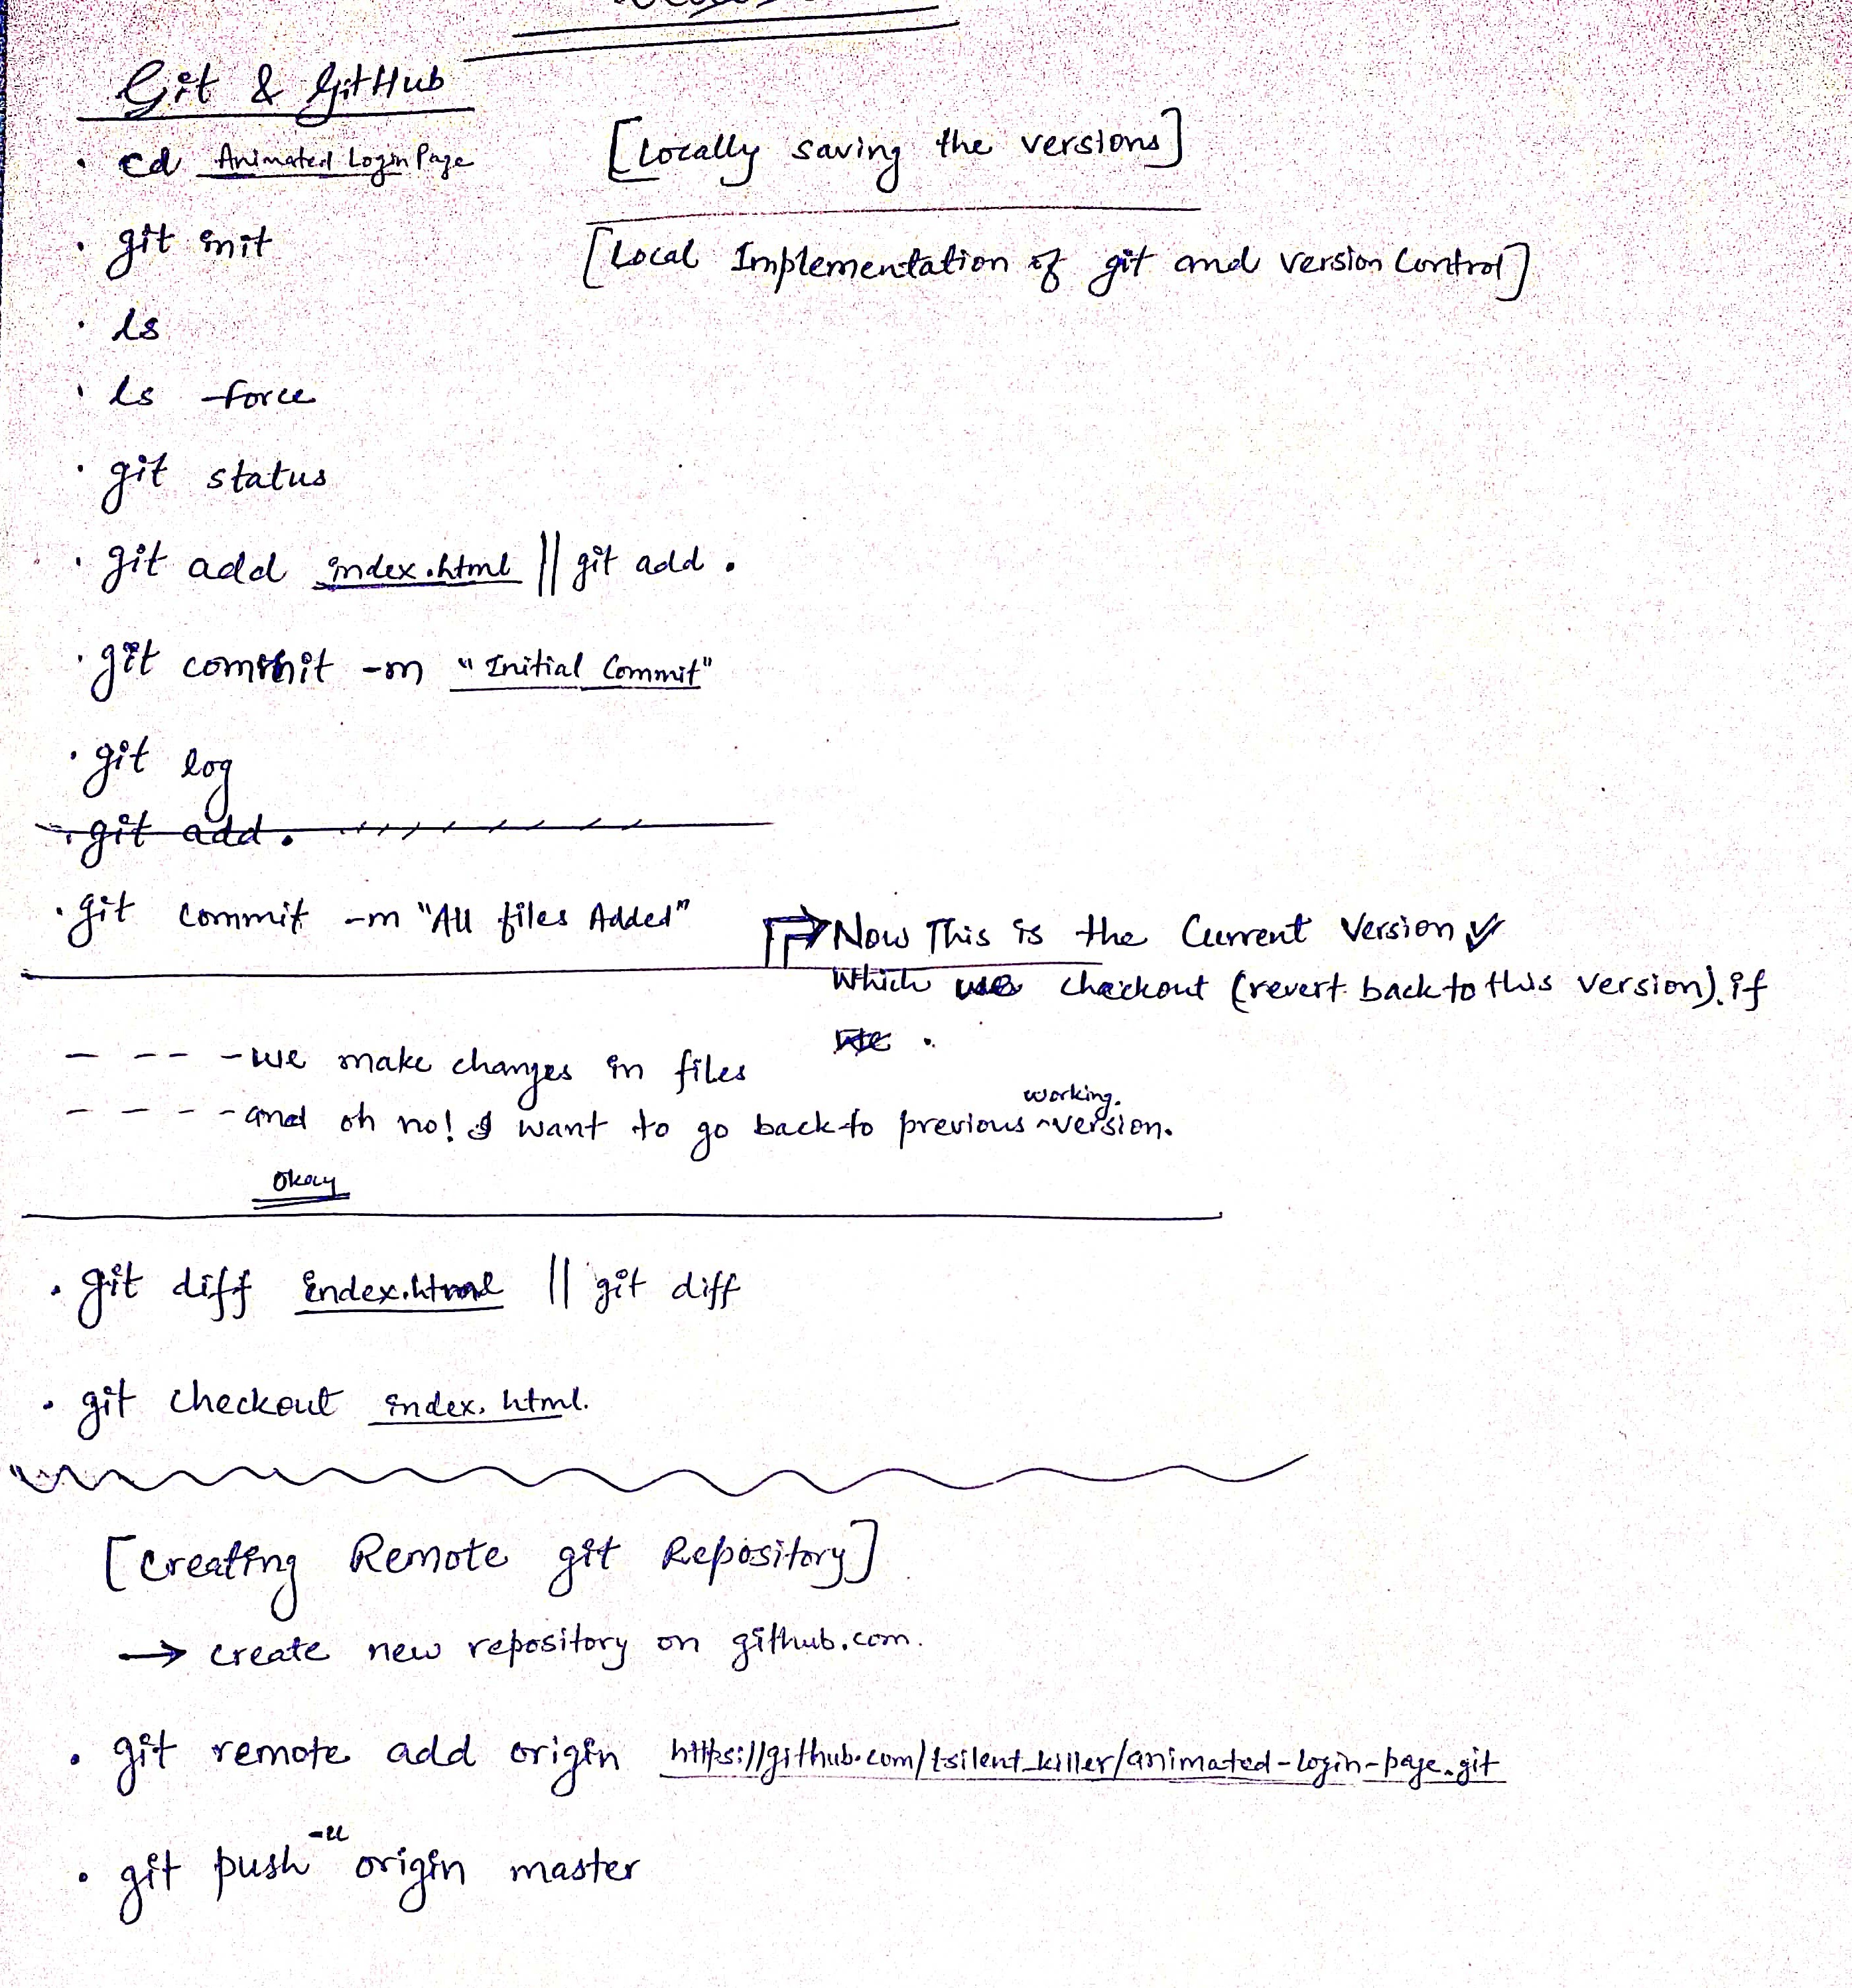 Git & GitHub
• cd Animated Login Page
[Locally saving the versions]
• git init
[Local Implementation of git and version Control]
• ls
• ls -force
• git status
• git add index.html || git add .
• git commit -m "Initial Commit"
• git log
• git add .
• git commit -m "All files Added"
Now This is the Current Version ✓
Which checkout (revert back to this version). if
- -- - we make changes in files
working.
- - - - and oh no! I want to go back to previous ^ version.
Okay
• git diff index.html || git diff
• git checkout index.html.
[Creating Remote git Repository]
→ create new repository on github.com.
• git remote add origin https://github.com/tsilent_killer/animated-login-page.git
-u
• git push origin master